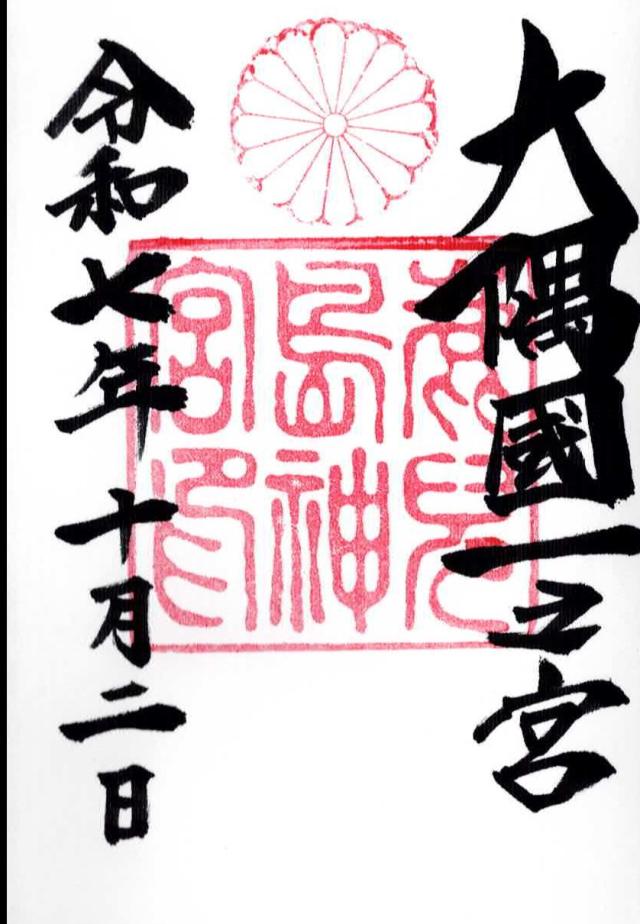 大隅國一之宮
鹿兒
島神
宮印
令和七年十月二日